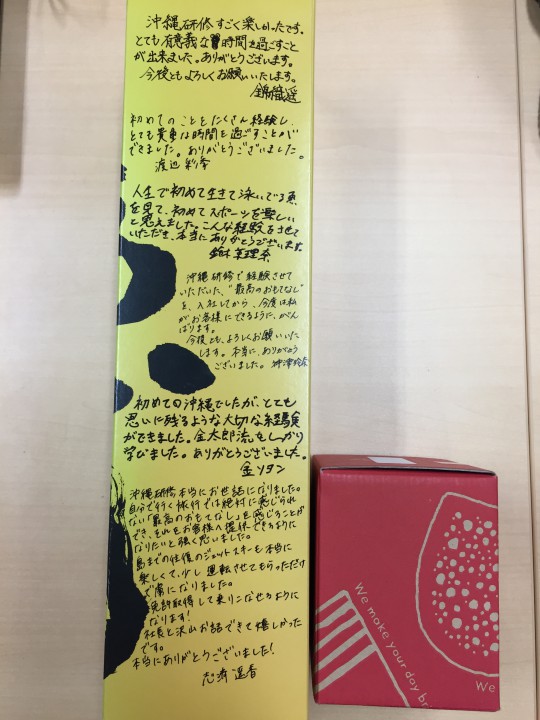 沖縄研修すごく楽しかったです。
とても有意義な時間を過ごすこと
が出来ました。ありがとうございます。
今後ともよろしくお願いいたします。
錦織遥
初めてのことをたくさん経験し、
とても貴重な時間を過ごすことが
できました。ありがとうございました。
渡辺彩季
人生で初めて生きて泳いでる魚
を見て、初めてスポーツを楽しい
と思えました。こんな経験をさせて
いただき、本当にありがとうございます。
鈴木茉理奈
沖縄研修で経験させて
いただいた、"最高のおもてなし"
を、入社してから、今度は私
がお客様にできるように、がん
ばります。
今後とも、よろしくお願いいた
します。本当に、ありがとう
ございました。
初めての沖縄でしたが、とても
思いに残るような大切な経験
ができました。金太郎流をしっかり
学びました。ありがとうございました。
金ソヨン
沖縄研修本当にお世話になりました。
自分で行く旅行では絶対に感じられ
ない「最高のおもてなし」を感じることが
でき、それをお客様へ提供できるように
なりたいと強く思いました。
島までの往復のジェットスキーも本当に
楽しくて、少し運転させてもらっただけ
で虜になりました。
免許取得して乗りこなせるように
なります!
社長と沢山お話できて嬉しかった
です。
本当にありがとうございました!
遥香
We make your day br
We